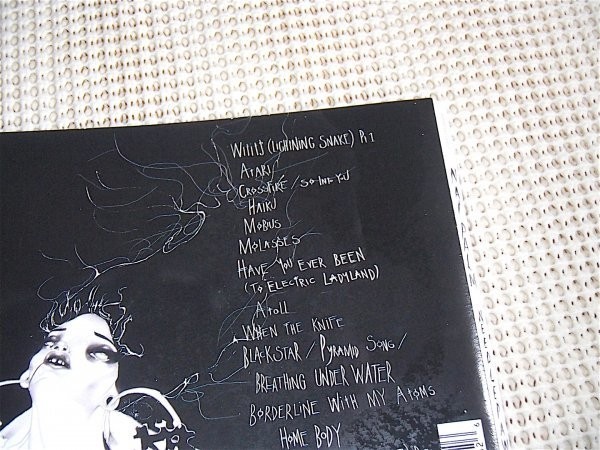 Willts (Lightning Snake) Pt 1
Atari
Crossfire / So Into You
Haiku
Mobius
Molasses
Have You Ever Been
(To Electric Ladyland)
Atoll
When The Knife
Blackstar / Pyramid Song /
Breathing Under Water
Borderline With My Atoms
Home Body